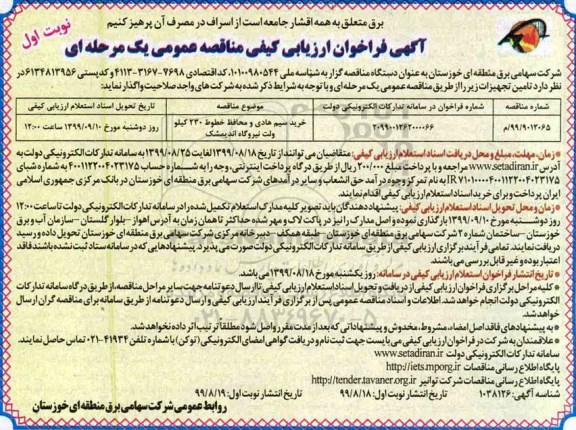 برق متعلق به همه اقشار جامعه است از اسراف در مصرف آن پرهیز کنیم
نوبت اول
آگهی فراخوان ارزیابی کیفی مناقصه عمومی یک مرحله ای
شرکت سهامی برق منطقه ای خوزستان به عنوان دستگاه مناقصه گزار به شناسه ملی ۱۰۱۰۰۹۸۰۵۴۴، کد اقتصادی ۷۶۹۸-۳۱۶۷-۴۱۱۳ و کدپستی ۶۱۳۴۸۱۳۹۵۶ در
نظر دارد تامین تجهیزات زیر را از طریق مناقصه عمومی یک مرحله ای و با توجه به شرایط ذکر شده به شرکت های واجد صلاحیت واگذار نماید:
شماره مناقصه شماره فراخوان در سامانه تدارکات الکترونیکی دولت موضوع مناقصه تاریخ تحویل اسناد استعلام ارزیابی کیفی
۹۹/۹۰۱۲۰۶۵/م ۲۰۹۹۰۰۱۲۶۲۰۰۰۰۶۶ خرید سیم هادی و محافظ خطوط ۲۳۰ کیلو ولت نیروگاه اندیمشک روز دوشنبه مورخ ۱۳۹۹/۰۹/۱۰ ساعت ۱۲:۰۰
*زمان، مهلت، مبلغ و محل دریافت اسناد استعلام ارزیابی کیفی: متقاضیان می توانند از تاریخ ۱۳۹۹/۰۸/۱۸ لغایت ۱۳۹۹/۰۸/۲۵ به سامانه تدارکات الکترونیکی دولت به
آدرس www.setadiran.ir مراجعه و با پرداخت مبلغ ۲۰۰/۰۰۰ ریال از طریق درگاه پرداخت اینترنتی، وجه را به شماره حساب ۴۰۰۱۱۲۲۰۰۴۰۲۳۱۷۵ به شماره شبای
IR ۷۱۰۱۰۰۰۰۴۰۰۱۱۲۲۰۰۴۰۲۳۱۷۵ به نام تمرکز وجوه درآمد حق انشعاب و سایر درآمدهای شرکت سهامی برق منطقه ای خوزستان در بانک مرکزی جمهوری اسلامی
ایران پرداخت و برای خرید اسناد استعلام ارزیابی کیفی اقدام نمایند.
*زمان و محل تحویل اسناد استعلام ارزیابی کیفی: پیشنهاددهندگان باید تصویر کلیه مدارک استعلام تکمیل شده را در سامانه تدارکات الکترونیکی دولت تا ساعت ۱۲:۰۰
روز دوشنبه مورخ ۱۳۹۹/۰۹/۱۰ بارگذاری نموده و اصل مدارک را نیز در پاکت لاک و مهر شده حداکثر تا همان زمان به آدرس اهواز - بلوار گلستان - سازمان آب و برق
خوزستان - ساختمان شماره ۲ شرکت سهامی برق منطقه ای خوزستان - طبقه همکف - دبیرخانه مرکزی شرکت سهامی برق منطقه ای خوزستان تحویل داده و رسید
دریافت نمایند. تمامی فرآیند برگزاری ارزیابی کیفی از طریق سامانه تدارکات الکترونیکی دولت صورت می پذیرد. پیشنهادهایی که در سامانه ستاد ثبت نشده باشند فاقد
اعتبار بوده و غیر قابل بررسی می باشند.
* تاریخ انتشار فراخوان استعلام ارزیابی کیفی در سامانه: روز یکشنبه مورخ ۱۳۹۹/۰۸/۱۸ می باشد.
* کلیه مراحل برگزاری فراخوان استعلام ارزیابی کیفی از دریافت و تحویل اسناد استعلام ارزیابی کیفی تا ارسال دعوتنامه جهت سایر مراحل مناقصه، از طریق درگاه سامانه تدارکات
الکترونیکی دولت انجام خواهد شد. اطلاعات و اسناد مناقصه عمومی پس از برگزاری فرآیند ارزیابی کیفی و ارسال دعوتنامه از طریق سامانه برای مناقصه گران ارسال
خواهد شد.
* به پیشنهادهای فاقد اصل امضاء، مشروط، مخدوش و پیشنهاداتی که بعد از مدت مقرر واصل شود مطلقا ترتیب اثر داده نخواهد شد.
* علاقمندان به شرکت در فراخوان ارزیابی کیفی می بایست جهت ثبت نام و دریافت گواهی امضای الکترونیکی (توکن) با شماره تلفن ۴۱۹۳۴-۰۲۱ تماس حاصل نمایند.
سامانه تدارکات الکترونیکی دولت www.setadiran.ir
پایگاه اطلاع رسانی مناقصات http://iets.mporg.ir
پایگاه اطلاع رسانی مناقصات شرکت توانیر http://tender.tavaner.org.ir
شناسه آگهی: ۱۰۳۸۱۲۶ تاریخ انتشار نوبت اول: ۹۹/۸/۱۸ تاریخ انتشار نوبت اول: ۹۹/۸/۱۹
روابط عمومی شرکت سهامی برق منطقه ای خوزستان
۰۲۱-۸۸۳۴۹۶۷۰-۵